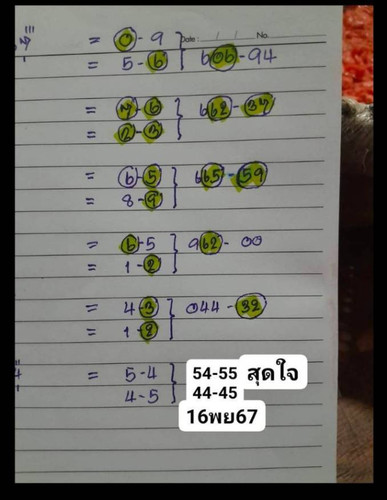 = 0 - 9
= 5 - 6
Date / / No.
606 - 94
= 7 - 6
= 2 - 3
662 - 37
= 6 - 5
= 8 - 9
665 - 59
= 6 - 5
= 1 - 2
962 - 00
= 4 - 3
= 1 - 2
044 - 32
= 5 - 4
4 - 5
54-55 สุดใจ
44-45
16พย67